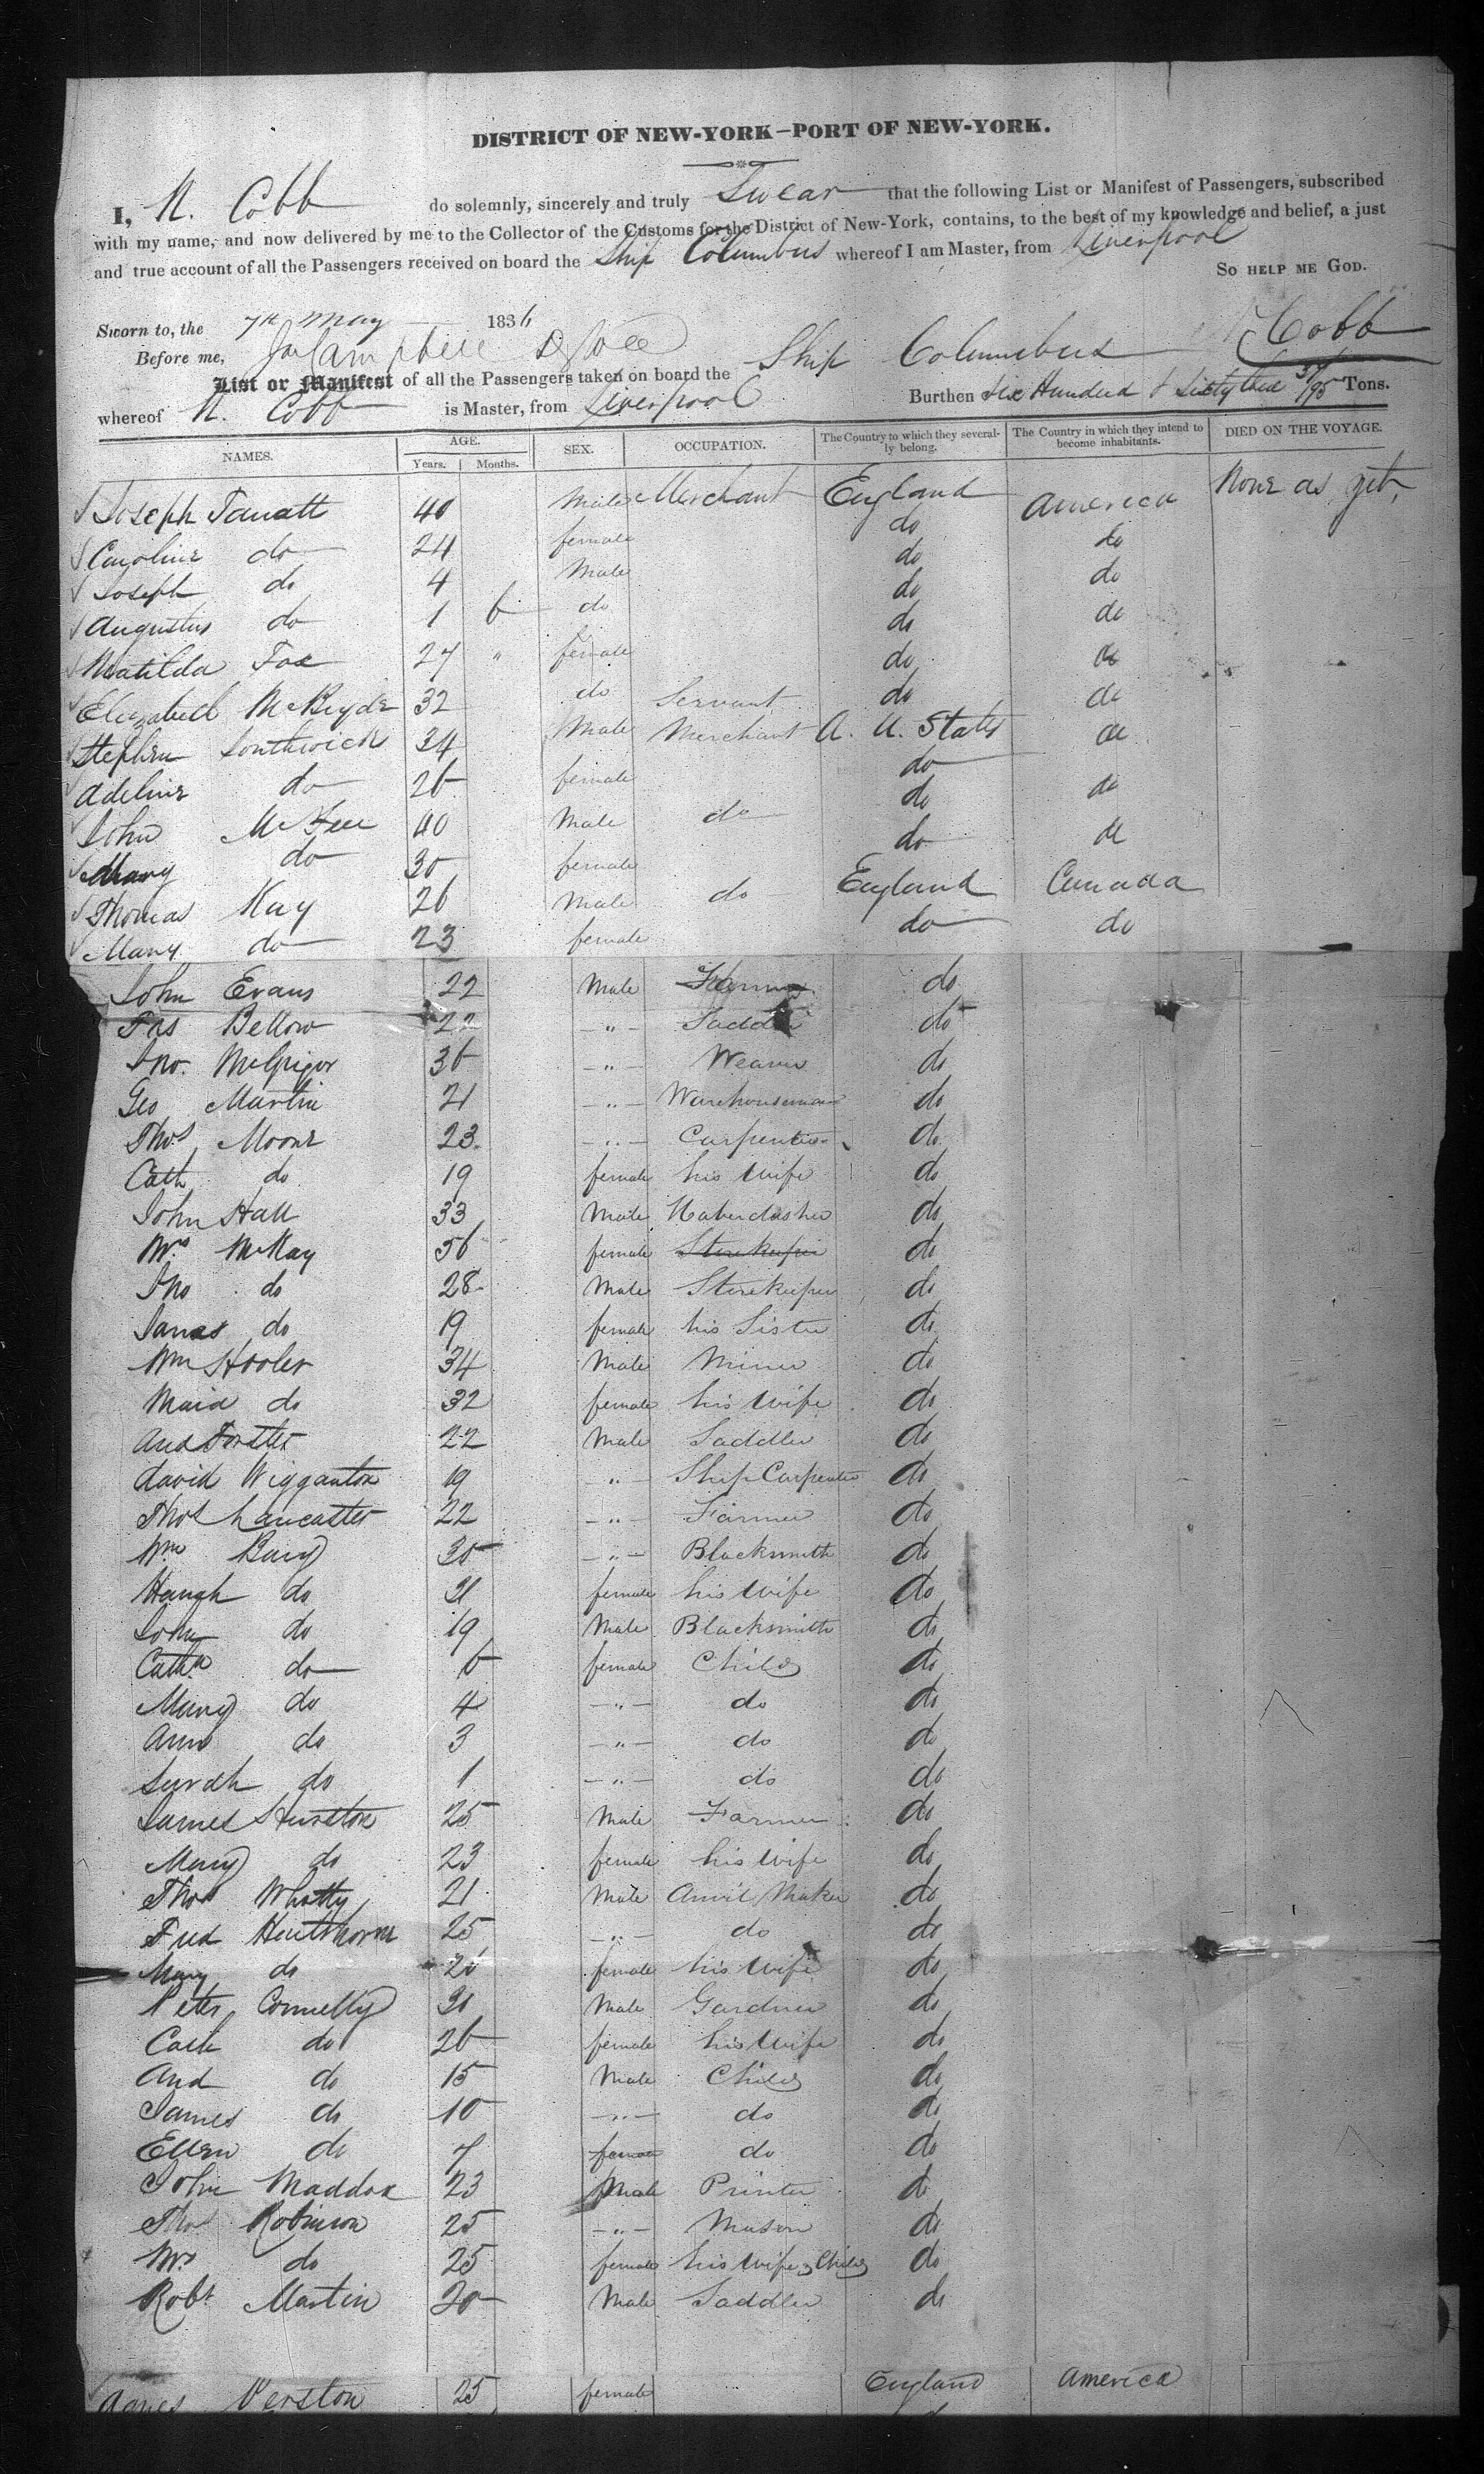 DISTRICT OF NEW-YORK—PORT OF NEW-YORK.
I, N. Cobb do solemnly, sincerely and truly Swear that the following List or Manifest of Passengers, subscribed
with my name, and now delivered by me to the Collector of the Customs for the District of New-York, contains, to the best of my knowledge and belief, a just
and true account of all the Passengers received on board the Ship Columbus whereof I am Master, from Liverpool
So HELP ME GOD.
Sworn to, the 7th May 1836 N Cobb
Before me,
List or Manifest of all the Passengers taken on board the Ship Columbus
whereof N. Cobb is Master, from Liverpool Burthen Six Hundred & Sixty three /95 Tons.
NAMES. AGE. Years. Months. SEX. OCCUPATION. The Country to which they severally belong. The Country in which they intend to become inhabitants. DIED ON THE VOYAGE.
Joseph 40 Male Merchant England America None as yet,
Caroline do 24 female do do
Joseph do 4 Male do do
Augustus do 1 6 do do do
Matilda Fox 27 " female do do
Elizabeth McBryde 32 do Servant do do
Stephen Southwick 34 Male Merchant A. U. States do
Adeline do 26 female do do
John McKee 40 Male do do do
Mary do 30 female do
Thomas Kay 26 Male do England Canada
Mary do 23 female do do
John Evans 22 Male Farmer do
Jas Bellow 22 " Saddler do
Jno. McGrigor 36 " Weaver do
Geo Martin 21 " Warehouseman do
Thos Moore 23 " Carpenter do
Cath do 19 female his Wife do
John Hall 33 Male Haberdasher do
Mrs McKay 56 female Storekeeper do
Jno do 28 Male Storekeeper do
do 19 female his Sister do
Wm Hooler 34 Male Miner do
Maria do 32 female his Wife do
And Forster 22 Male Saddler do
David 19 " Ship Carpenter do
Thos Lancaster 22 " Farmer do
Wm 35 " Blacksmith do
Hanah do 31 female his Wife do
John do 19 Male Blacksmith do
Catha do 6 female Child do
Mary do 4 " do do
Ann do 3 " do do
Sarah do 1 " do do
James 25 Male Farmer do
Mary do 23 female his Wife do
Thos Whatty 21 Male Anvil Maker do
Fred Hentshorne 25 " do do
Mary do female his Wife do
Peter Connelly 30 Male Gardner do
Cath do 26 female his Wife do
And do 15 Male Child do
James do 10 " do do
Ellen do 7 female do do
John Maddox 23 Male Printer do
Thos Robinson 25 " Mason do
Mrs do 25 female his Wife & Child do
Robt Martin 20 Male Saddler do
Agnes Verston 25 female England America